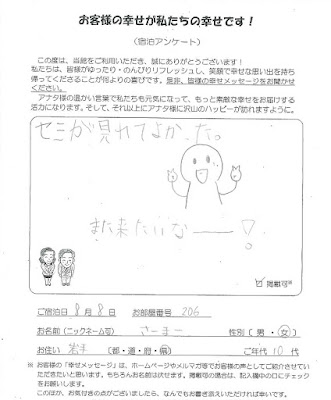 お客様の幸せが私たちの幸せです！
（宿泊アンケート）
この度は、当館をご利用いただき、誠にありがとうございます！
私たちは、皆様がゆったり・のんびりリフレッシュし、笑顔で幸せな思い出を持ち
帰ってくださることが何よりの喜びです。是非、皆様の幸せメッセージをお聞かせ
ください。
アナタ様の温かい言葉で私たちも元気になって、もっと素敵な幸せをお届けする
活力になります。そして、それ以上にアナタ様に沢山のハッピーが訪れますように。
セミが見れてよかった。
また来たいなーー！
☑ 掲載可※
ご宿泊日 8月 8日 お部屋番号 206
お名前（ニックネーム可） さーまー 性別（ 男 ・ 女 ）
お住い 岩手 （都・道・府・県） ご年代 10 代
※「幸せメッセージ」は、ホームページやメルマガ等でお客様の声としてご紹介させてい
ただきたいと思います。もちろんお名前は伏せます。掲載可の場合は、記入欄中の口にチェック
をお願いします。
このほか、お気付きの点がございましたら、なんでもお書き添えいただければ幸いです。